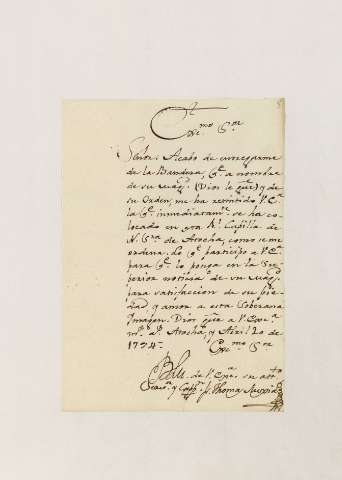 Exc.mo S.or
Señor: Acabo de entregarme
de la Bandera, q.e a nombre
de su Mag.d (Dios le gue) y de
su Orden, me ha remitido V.E.a
la q.e inmediatam.te se ha co-
locado en esta R.l Capilla de
N. Sra de Atocha, como se me
ordena. Lo q.e participo a V.E.a
para q.e lo ponga en la Su-
perior noticia de su Mag.d
para satisfaccion de su pie-
dad y amor a esta Soberana
Imagen. Dios gue a V.Exa
m.s a.s Atocha y Abril 20 de
1734.
Exc.mo S.or
BLM. de V.Exa. su att.o
Serv.r y Capp.n fr. Thomas